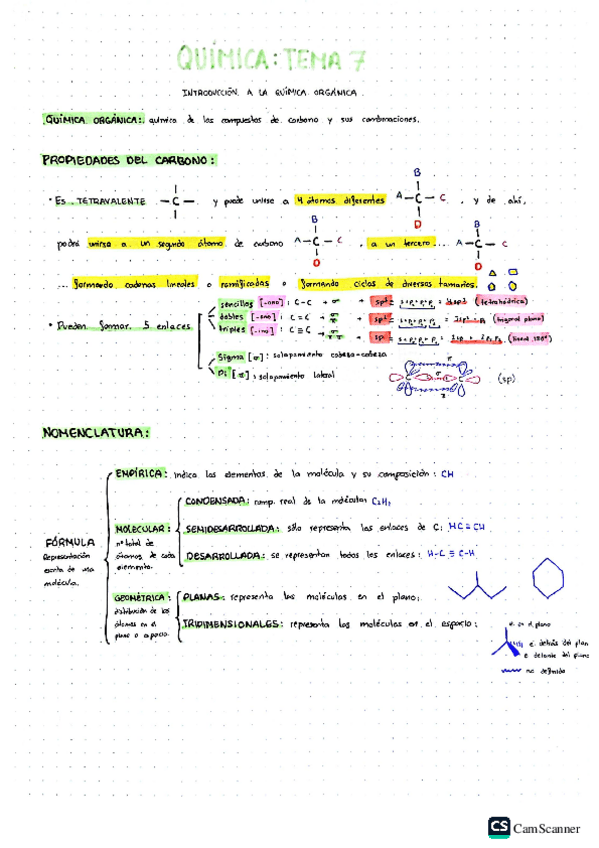 QUÍMICA: TEMA 7
INTRODUCCIÓN A LA QUÍMICA ORGÁNICA.
QUÍMICA ORGÁNICA: química de los compuestos de carbono y sus combinaciones.
PROPIEDADES DEL CARBONO:
• Es TETRAVALENTE – C – , y puede unirse a 4 átomos diferentes A – C – C , y de ahí,
B
D
podrá unirse a un segundo átomo de carbono A – C – C , a un tercero... A – C – C
B
D
B
D
... formando cadenas lineales o ramificadas o formando ciclos de diversos tamaños.
• Pueden formar 5 enlaces
sencillos [-ano]: C-C → σ → sp³ (tetrahédrica)
dobles [-eno]: C=C → σ π → sp² (trigonal plana)
triples [-ino]: C≡C → σ π → sp (lineal 180º)
Sigma [σ]: solapamiento cabeza-cabeza
Pi [π]: solapamiento lateral
π
σ
C C
(sp)
NOMENCLATURA:
FÓRMULA
Representación
escrita de una
molécula.
EMPÍRICA: indica los elementos de la molécula y su composición: CH
MOLECULAR:
nº total de
átomos de cada
elemento.
CONDENSADA: comp. real de la molécula: C₂H₂
SEMIDESARROLLADA: sólo representa los enlaces de C: HC≡CH
DESARROLLADA: se representan todos los enlaces: H-C≡C-H
GEOMÉTRICA:
distribución de los
átomos en el
plano o espacio.
PLANAS: representa las moléculas en el plano:
TRIDIMENSIONALES: representa las moléculas en el espacio:
e. en el plano
e. detrás del plan
e. delante del plano
no definido
CS CamScanner